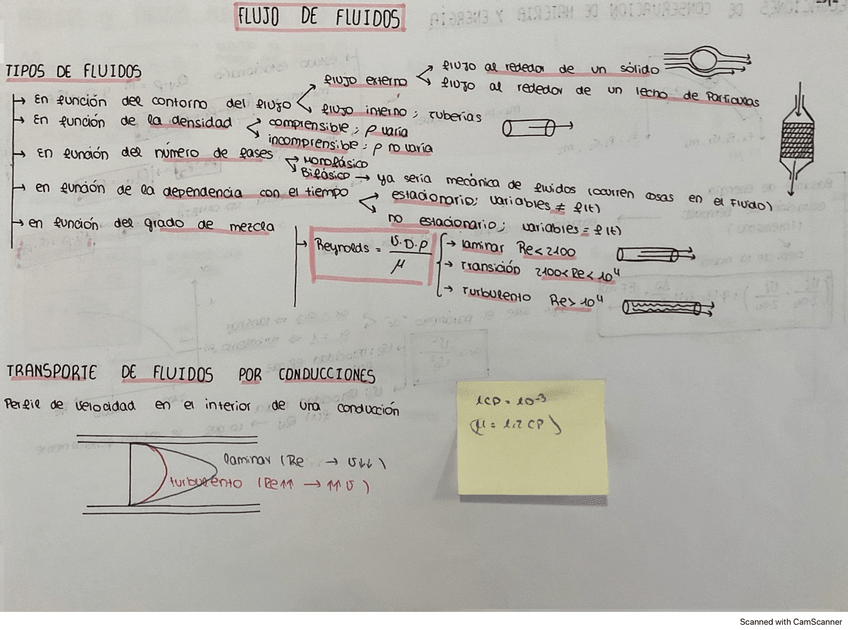 FLUJO DE FLUIDOS
TIPOS DE FLUIDOS
→ En función del contorno del flujo < flujo externo < flujo al rededor de un sólido
flujo al rededor de un lecho de partículas
flujo interno; tuberías
→ En función de la densidad < comprensible; ρ varia
incomprensible; ρ no varia
→ en función del número de fases → Monofásico
Bifásico → ya seria mecánica de fluidos (ocurren cosas en el fluido)
→ en función de la dependencia con el tiempo < estacionario; variables ≠ f(t)
no estacionario; variables = f(t)
→ en función del grado de mezcla
→ Reynolds = v·D·ρ / μ
→ laminar Re<2100
→ transición 2100<Re<10⁴
→ turbulento Re>10⁴
TRANSPORTE DE FLUIDOS POR CONDUCCIONES
Perfil de velocidad en el interior de una conducción
laminar (Re → v↓↓)
turbulento (Re↑↑ → ↑↑v)
1cp = 10⁻³
(μ = 1.2 cp)
Scanned with CamScanner